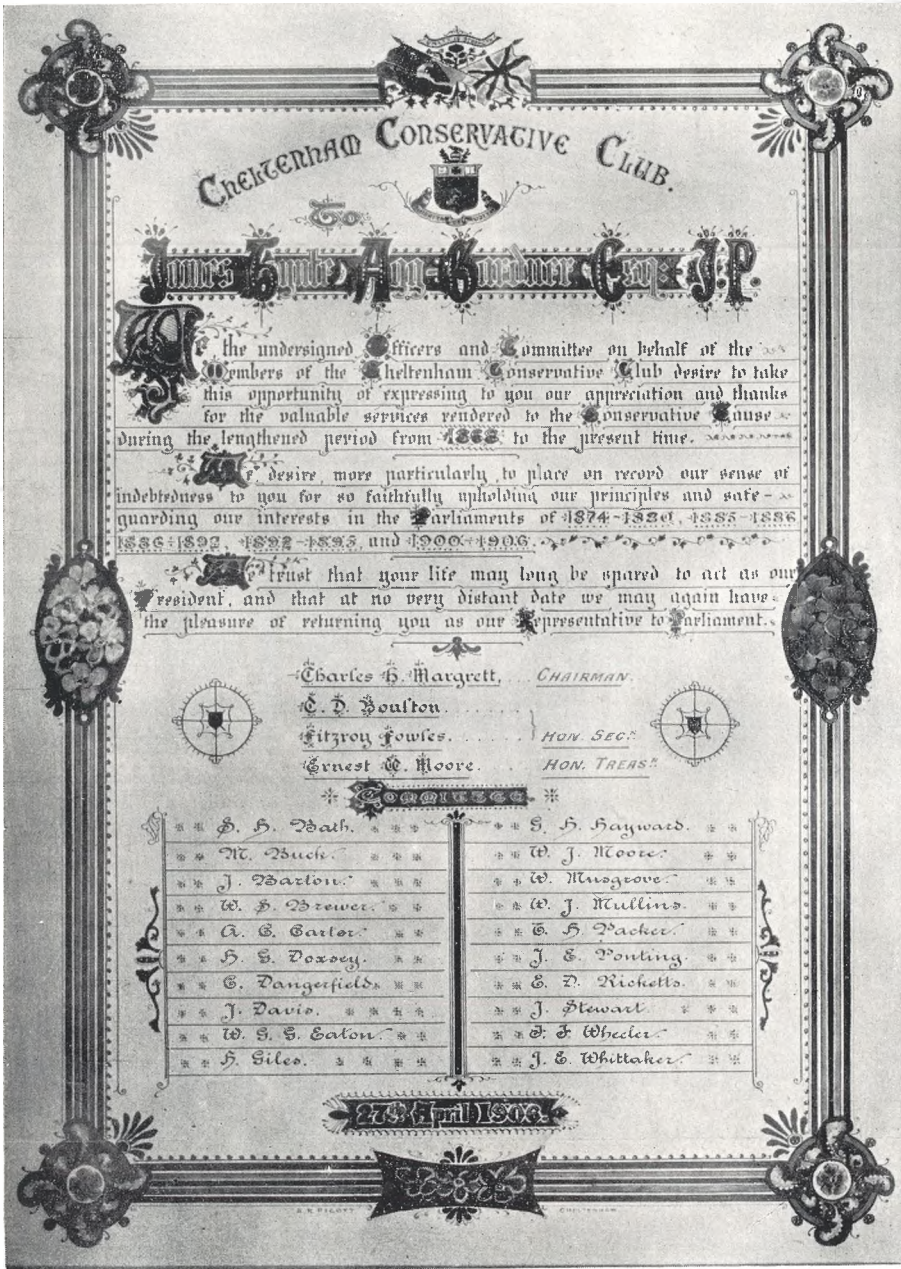 CHELTENHAM CONSERVATIVE CLUB.
To
James Tynte Agg-Gardner Esq: J.P.
We the undersigned Officers and Committee on behalf of the
Members of the Cheltenham Conservative Club desire to take
this opportunity of expressing to you our appreciation and thanks
for the valuable services rendered to the Conservative Cause
during the lengthened period from 1868 to the present time.
We desire, more particularly, to place on record our sense of
indebtedness to you for so faithfully upholding our principles and safe-
guarding our interests in the Parliaments of 1874-1880, 1885-1886
1886-1892, 1892-1895, and 1900-1906.
We trust that your life may long be spared to act as our
President, and that at no very distant date we may again have
the pleasure of returning you as our Representative to Parliament.
Charles H. Margrett, CHAIRMAN.
C. D. Boulton
Fitzroy Fowles. HON. SECS
Ernest W. Moore. HON. TREASR
COMMITTEE
S. H. Bath. G. H. Hayward.
M. Buck. W. J. Moore.
J. Barton. W. Musgrove.
W. S. Brewer. W. J. Mullins.
A. C. Carter. T. H. Packer.
H. G. Dorsey. J. E. Ponting.
C. Dangerfield. E. D. Ricketts.
J. Davis. J. Stewart.
W. G. G. Eaton. F. F. Wheeler.
H. Giles. J. E. Whittaker.
27th April 1906.
CHELTENHAM